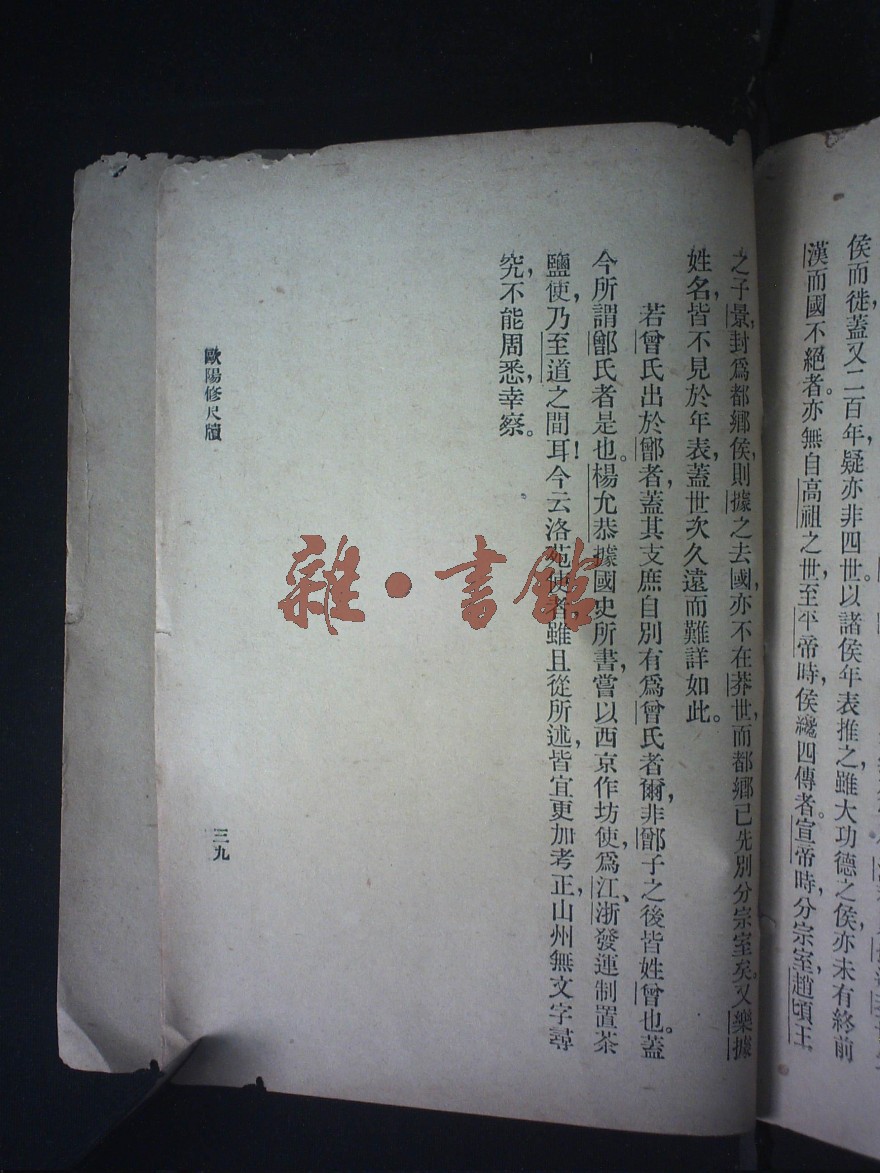 侯而徙，蓋又二百年，疑亦非四世。以諸侯年表推之，雖大功德之侯，亦未有終前
漢而國不絕者。亦無自高祖之世，至平帝時，侯纔四傳者。宣帝時，分宗室，趙頃王
之子景，封爲都鄉侯，則據之去國，亦不在莽世，而都鄉已先別分宗室矣。又樂、據
姓名，皆不見於年表，蓋世次久遠而難詳如此。
若曾氏出於鄫者，蓋其支庶自別有爲曾氏者爾，非鄫子之後皆姓曾也。蓋
今所謂鄫氏者是也。楊允恭據國史所書，嘗以西京作坊使，爲江、浙發運制置茶
鹽使，乃至道之間耳！今云洛苑使者，雖且從所述，皆宜更加考正，山州無文字尋
究，不能周悉，幸察。
歐陽修尺牘
三九
雜·書館